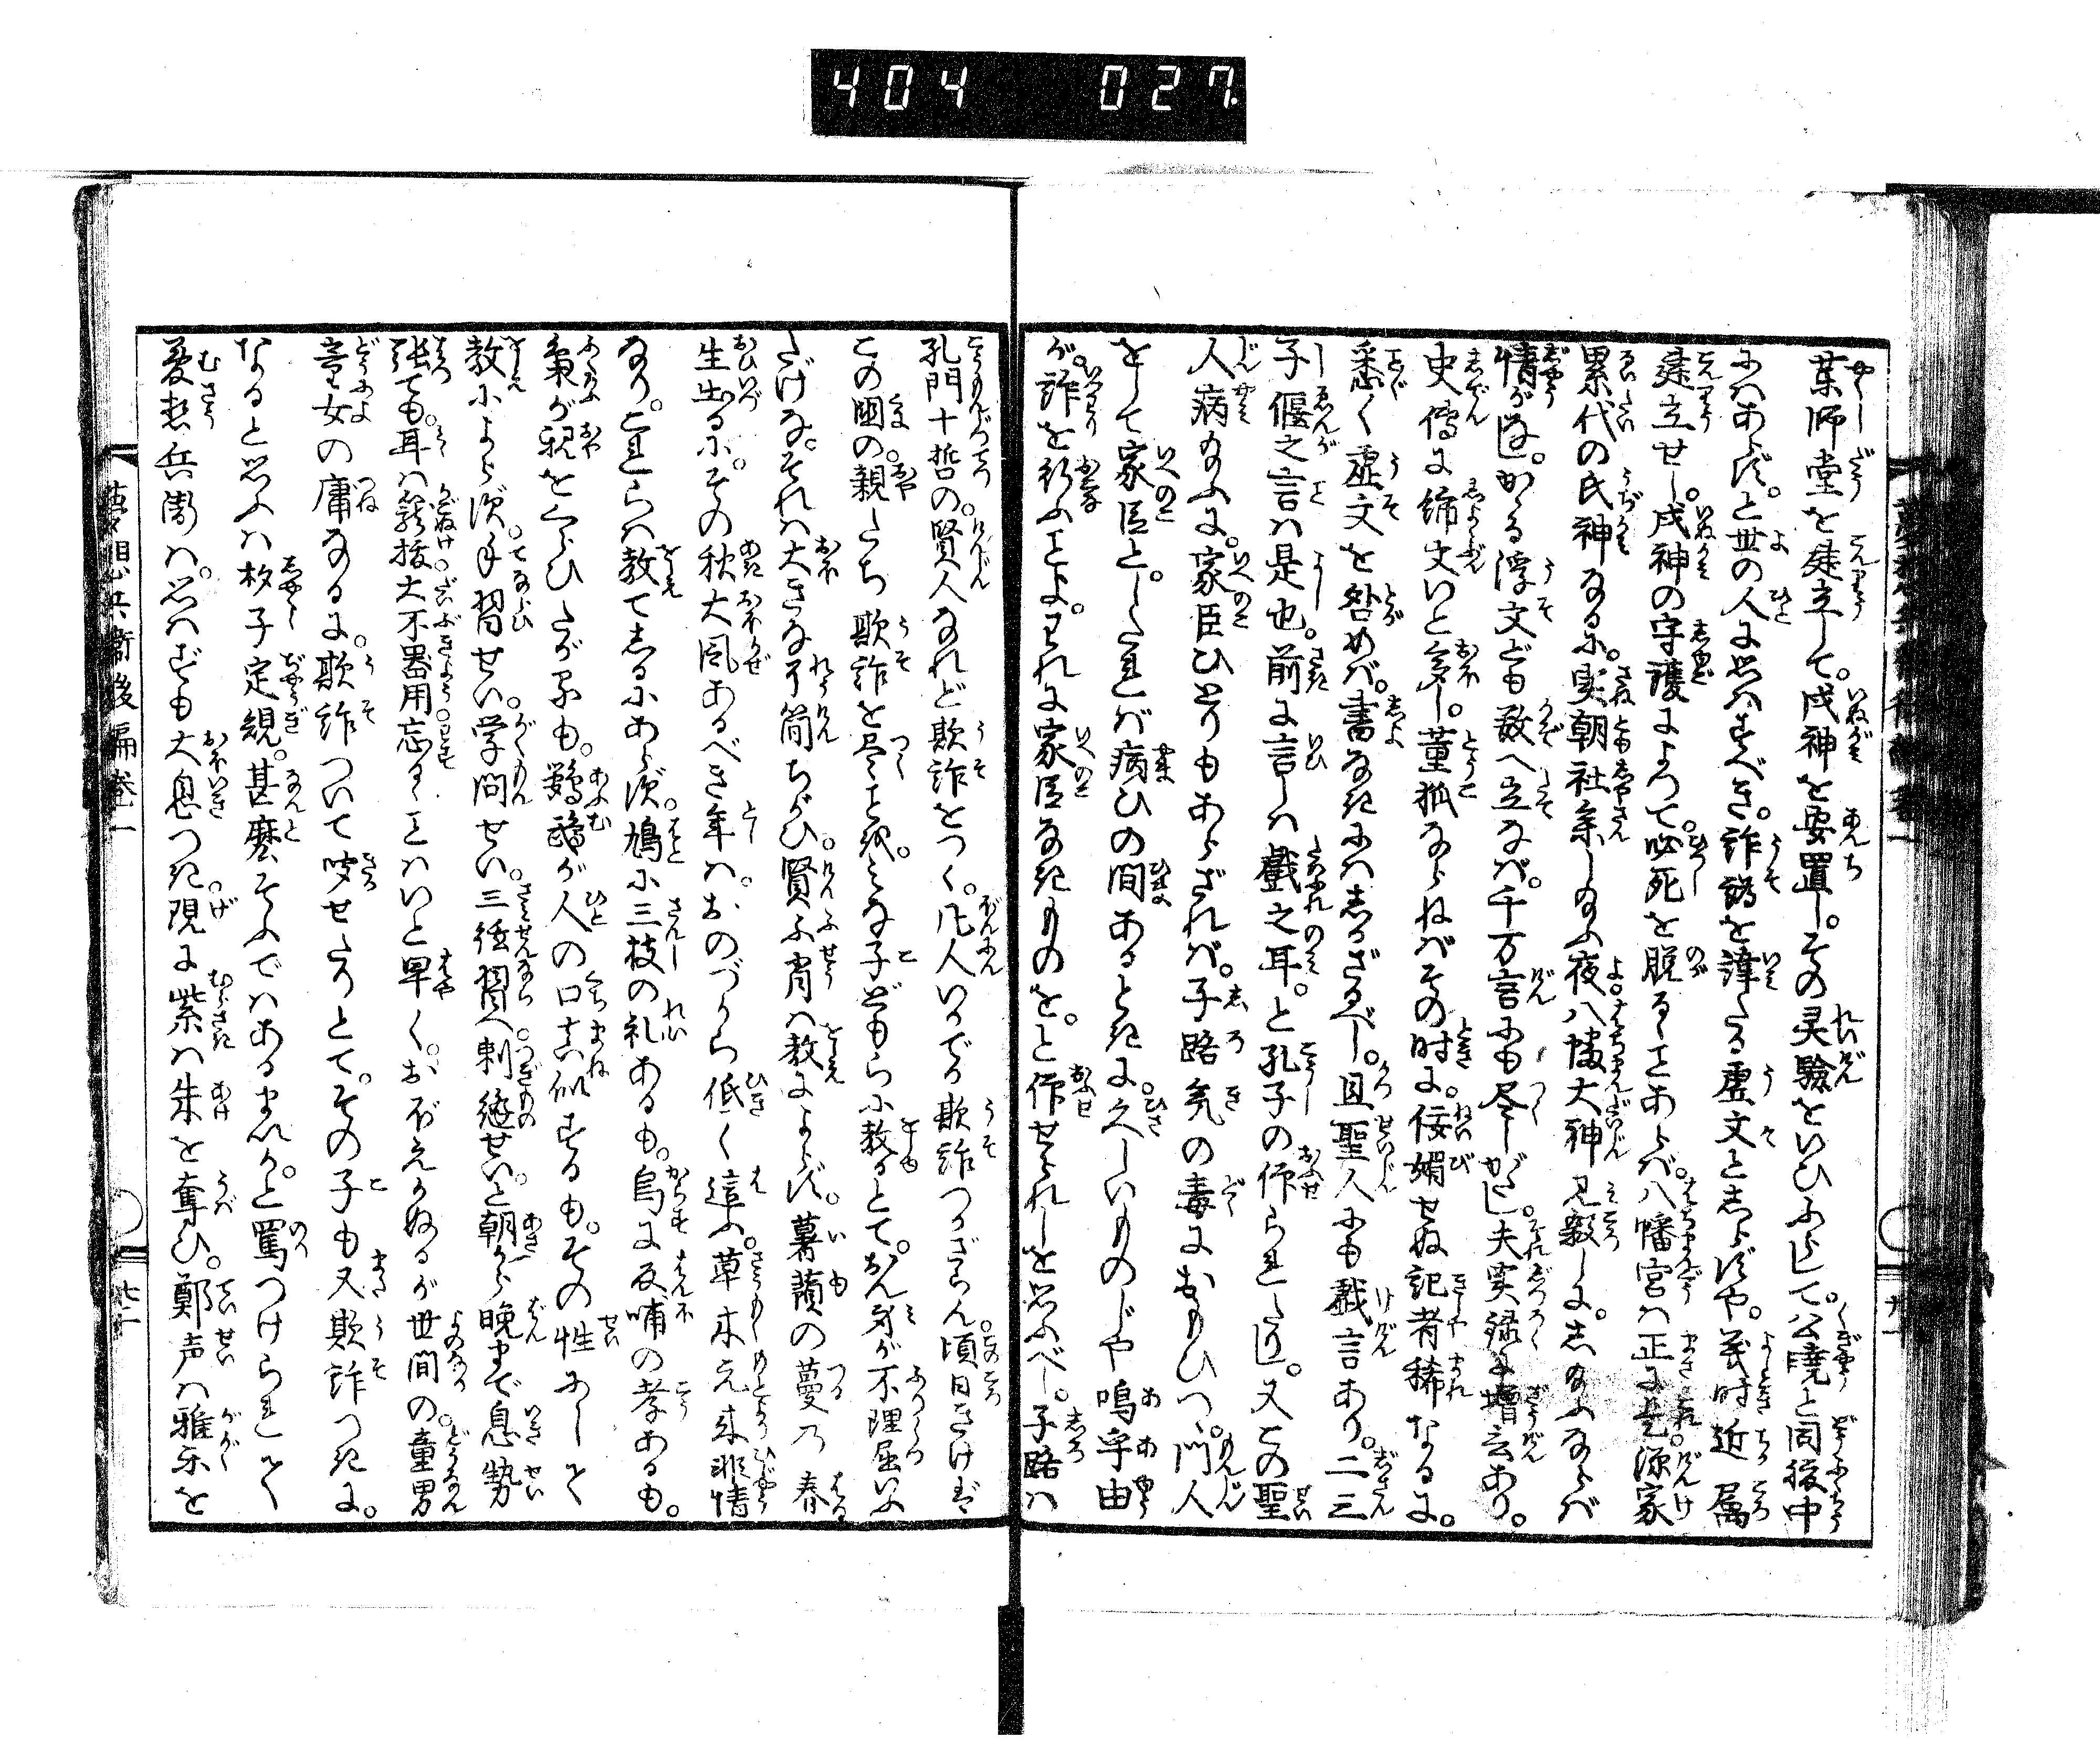 404 027
薬師堂を建立して。戌神を安置し。その灵驗をいひふらして。公暁と同腹中
にはあらず。と世の人に思はすべき。詐譌を諱たる虚文としらずや。義時近属
建立せし。戌神の守護によつて。必死を脱るゝことあらば。八幡宮は正に是源家
累代の氏神なるに。実朝社参し給ふ夜八幡大神見殺しに。し給ふならば
情がなし。かゝる浮文ども数へ立なば。千万言にも尽しがたし。夫実録に増言あり。
史傳に締文いと多し。董狐ならねばその時に。佞媚せぬ記者稀なるに。
悉く虚文を咎めば。書なきにはしかざるべし。且聖人にも戯言あり。二三
子偃之言は是也。前に言しは戲之耳。と孔子の仰られたり。又この聖
人病給ふに。家臣ひとりもあらざれば。子路気の毒におもひつゝ。門人
をして家臣とし。たれば病ひの間あるときに。久しいものじや嗚乎由
が。詐を行ふことよ。われに家臣なきものを。と仰せられしを思ふべし。子路は
孔門十哲の。賢人なれど欺詐をつく。凡人いかでか欺詐つかざらん。頃日きけば
この國の。親たち欺詐を尽ことを。みな子どもらに教るとて。おん身が不理屈いふ
だげな。それは大きな了簡ちがひ。賢不肖は教によらず。薯蕷の蔓の春
生出るに。その秋大風あるべき年は。おのづから低く這ふ。草木元来非情
なり。これらは教てしるにあらず。鳩に三枝の礼あるも。烏に反哺の孝あるも。
梟が親をくらひたがるも。鸚鵡が人の口真似するも。その性にして
教によらず。手習せい。学問せい。三絃習へ刺縫せい。と朝から晩まで息勢
張ても。耳は籠拔大不器用忘るゝことはいと早く。おぼえかぬるが世間の。童男
童女の庸なるに。欺詐ついて咬せたりとて。その子も又欺詐つきに。
なると思ふは杓子定規。甚麽そふではあるまいか。と罵つけられて
夢想兵衛は。思はずも大息つき現に紫は朱を奪ひ。鄭声は雅楽を
夢想兵衛後編巻一